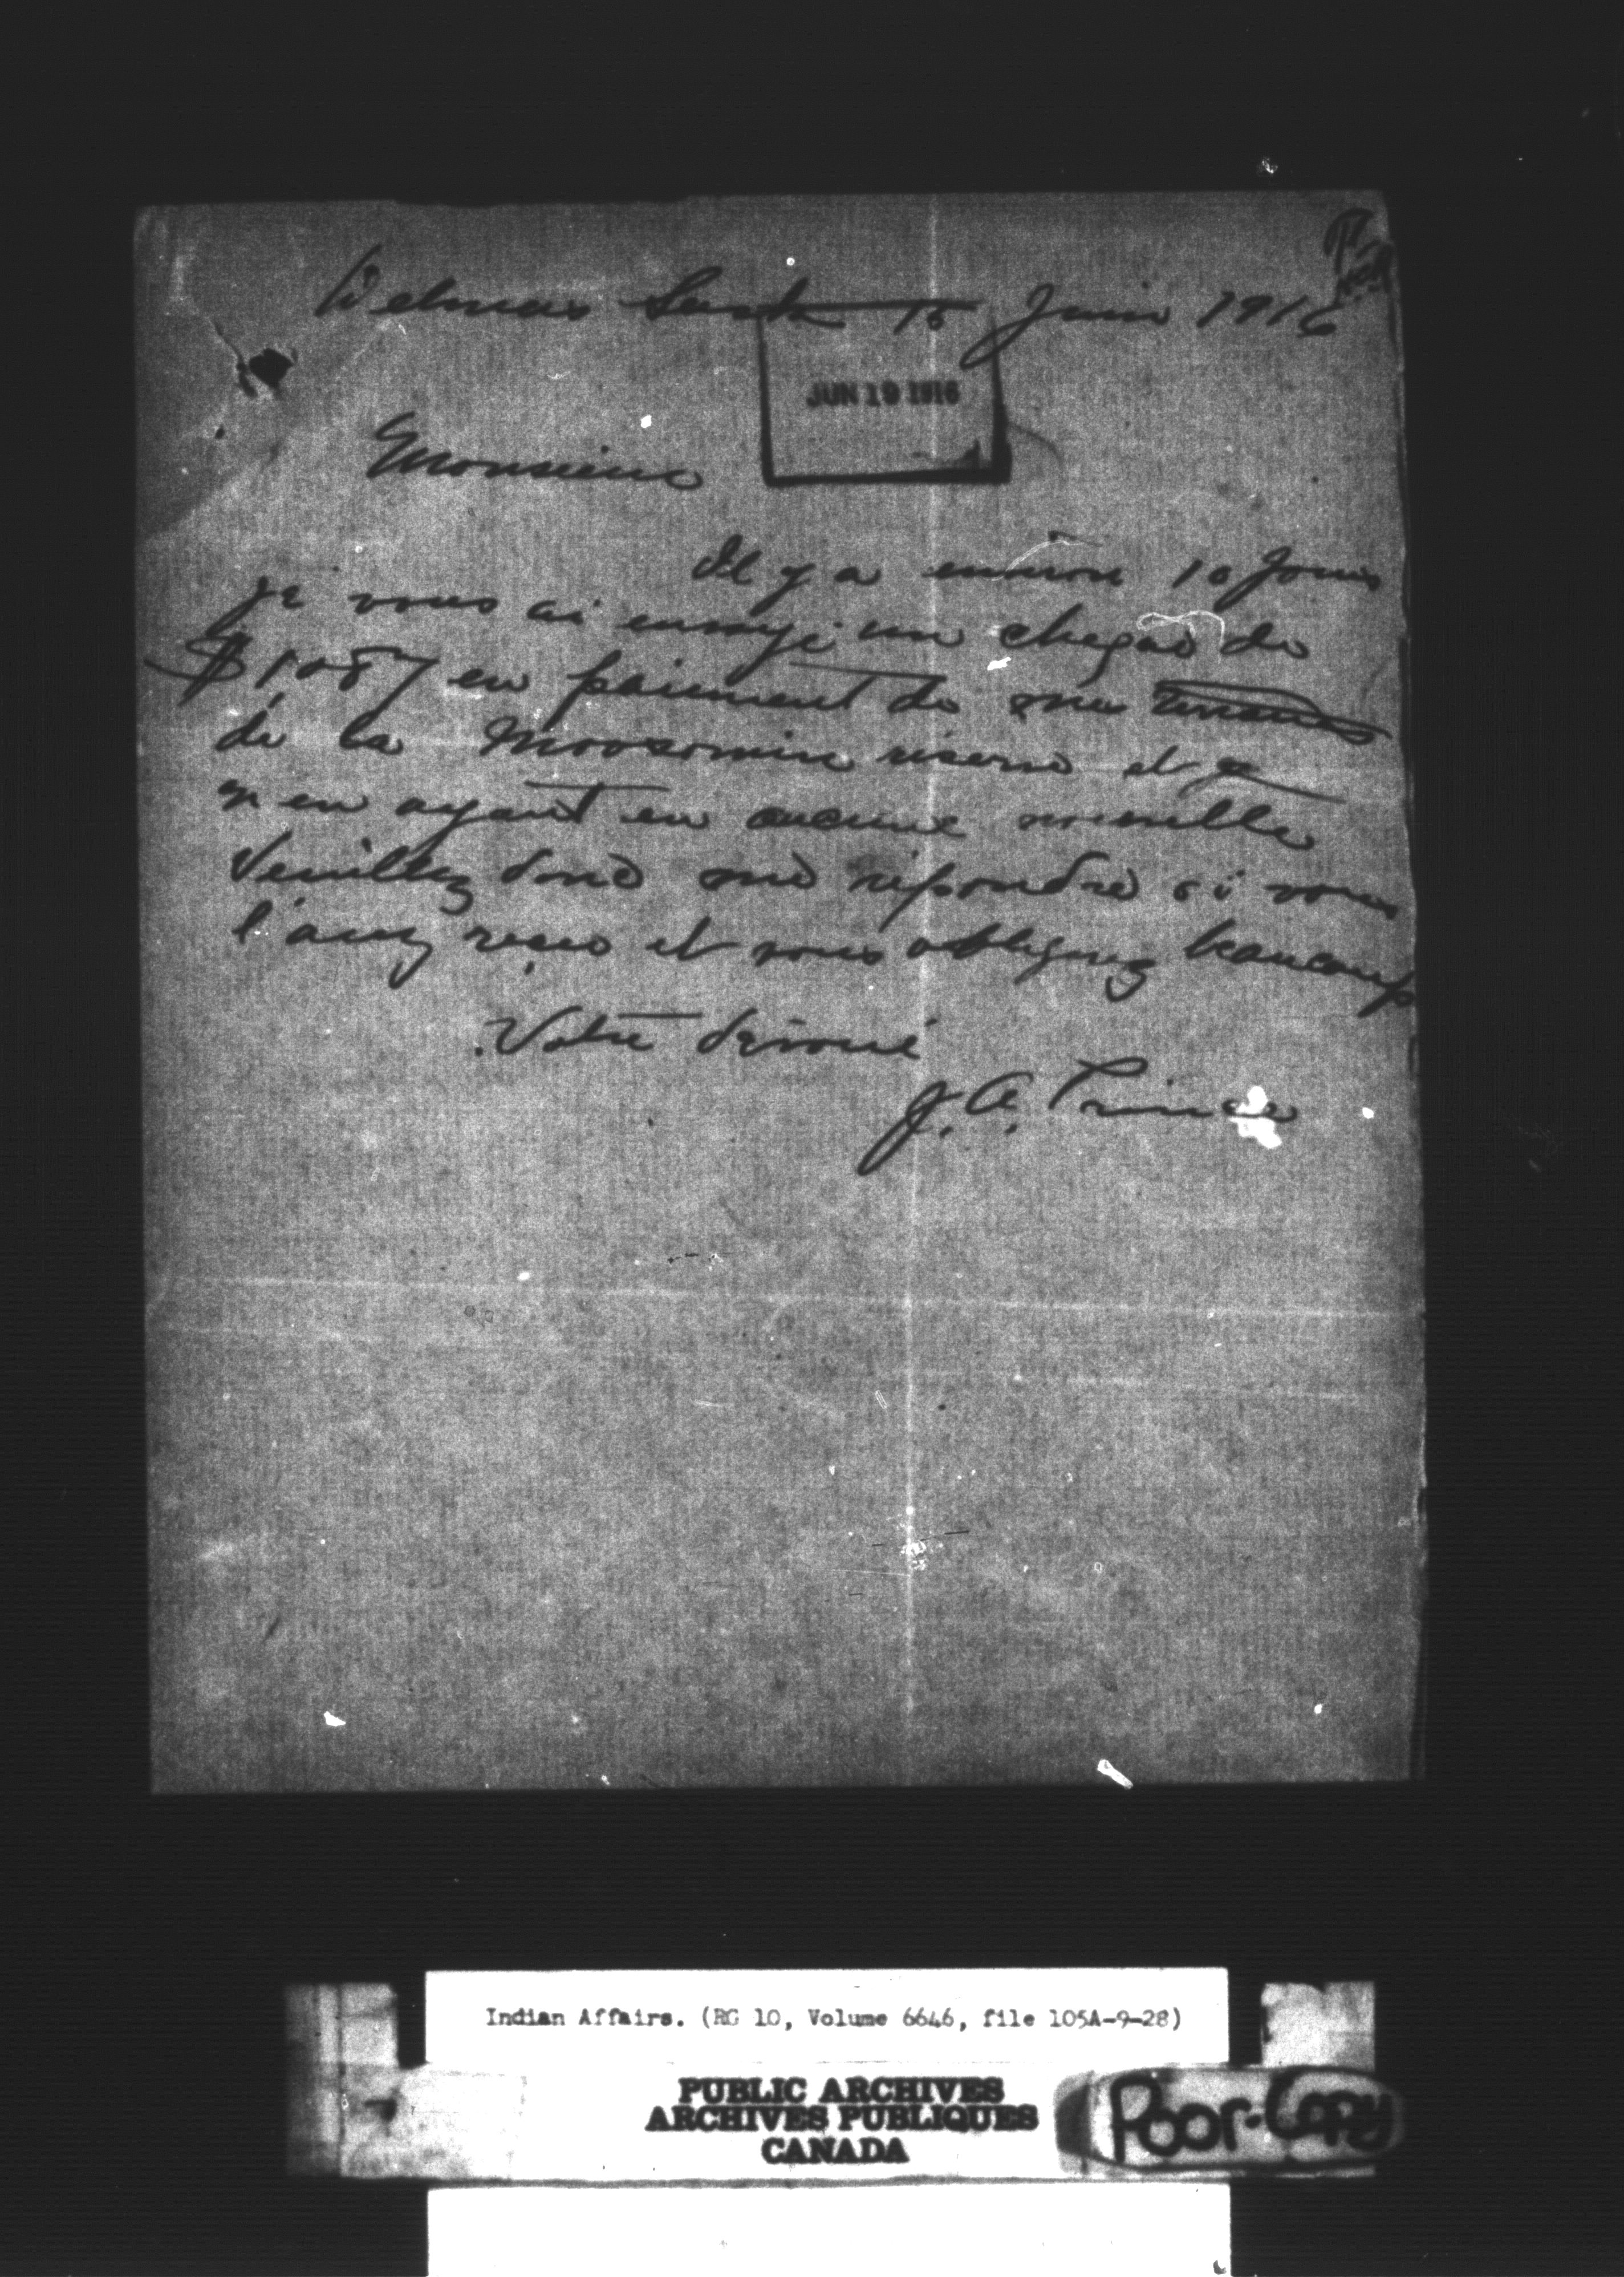 Delmas Sask 15 Juin 1916
JUN 19 1916
Monsieur
Il y a environ 10 Jours
je vous ai envoyé un cheque de
$1087 en paiement de ma terrains
de la Moosomin réserve et je
n en ayant eu aucune nouvelle
Veuillez donc me répondre si vous
l'avez reçu et vous obligerez beaucoup
Votre dévoué
J. A. Prince
Indian Affairs. (RG 10, Volume 6646, file 105A-9-28)
PUBLIC ARCHIVES
ARCHIVES PUBLIQUES
CANADA
Poor-Copy